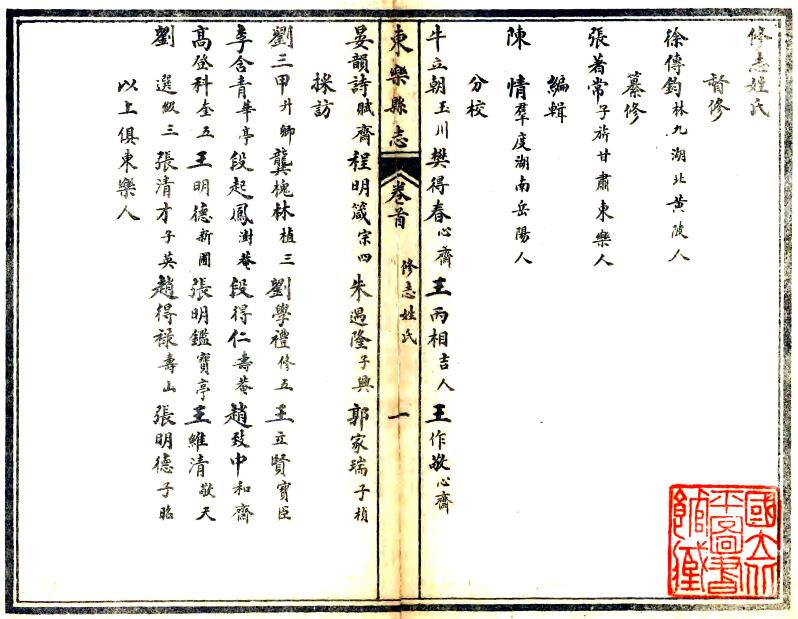 修志姓氏
督修
徐傳鈞林九湖北黃陂人
纂修
張著常子㫋甘肅東樂人
編輯
陳情羣度湖南岳陽人
分校
牛立朝玉川樊得春心齋王丙相吉人王作敬心齋
東樂縣志 卷首 修志姓氏 一
晏韻詩賦齋程明箴宗四朱遇隆子興郭家瑞子楨
採訪
劉三甲升卿龔槐林植三劉學禮修五王立賢寶臣
李含青華亭段起鳳澍菴段得仁壽菴趙致中和齋
高登科奎五王明德新圃張明鑑寶亭王維清敬天
劉選級三張清才子英趙得祿壽山張明德子昭
以上俱東樂人
國立北平圖書館藏